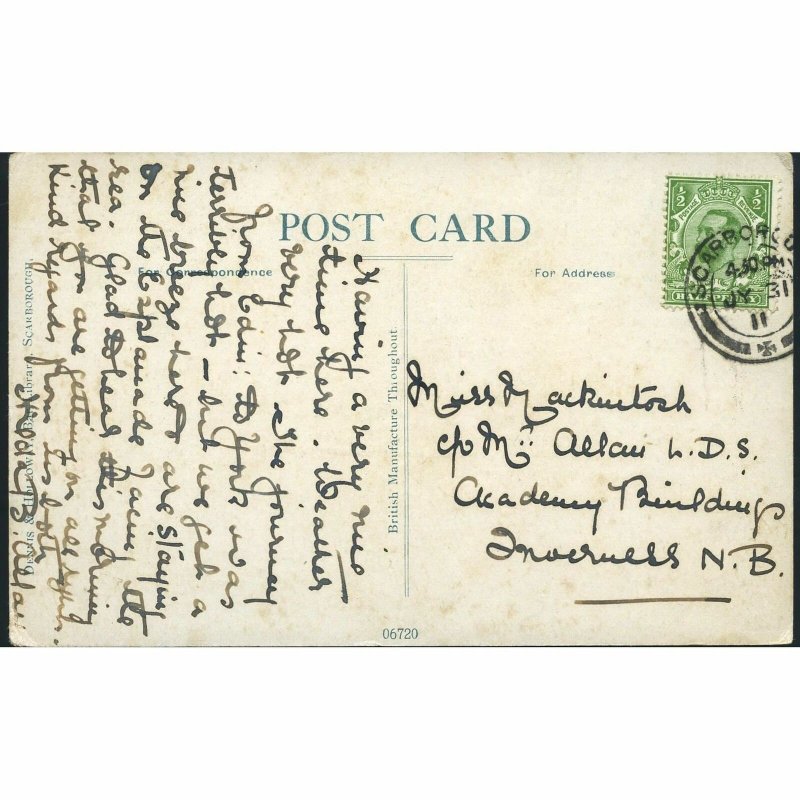 POST CARD
For Correspondence
For Address
Havin' a very nice
time here. Weather
very hot. The journey
from Edin: to York was
terribly hot – but we get a
nice breeze here & are staying
on the Esplanade facing the
sea. Glad to hear this morning
that you are getting on all right.
Kind regards from us both
British Manufacture Throughout
Dennis & Library, Scarborough.
06720
½ ½
POSTAGE REVENUE
SCARBOROUGH
4.30 PM
JY 31
11
Miss Mackintosh
c/o Mr: Allan L.D.S.
Academy Buildings
Inverness N.B.